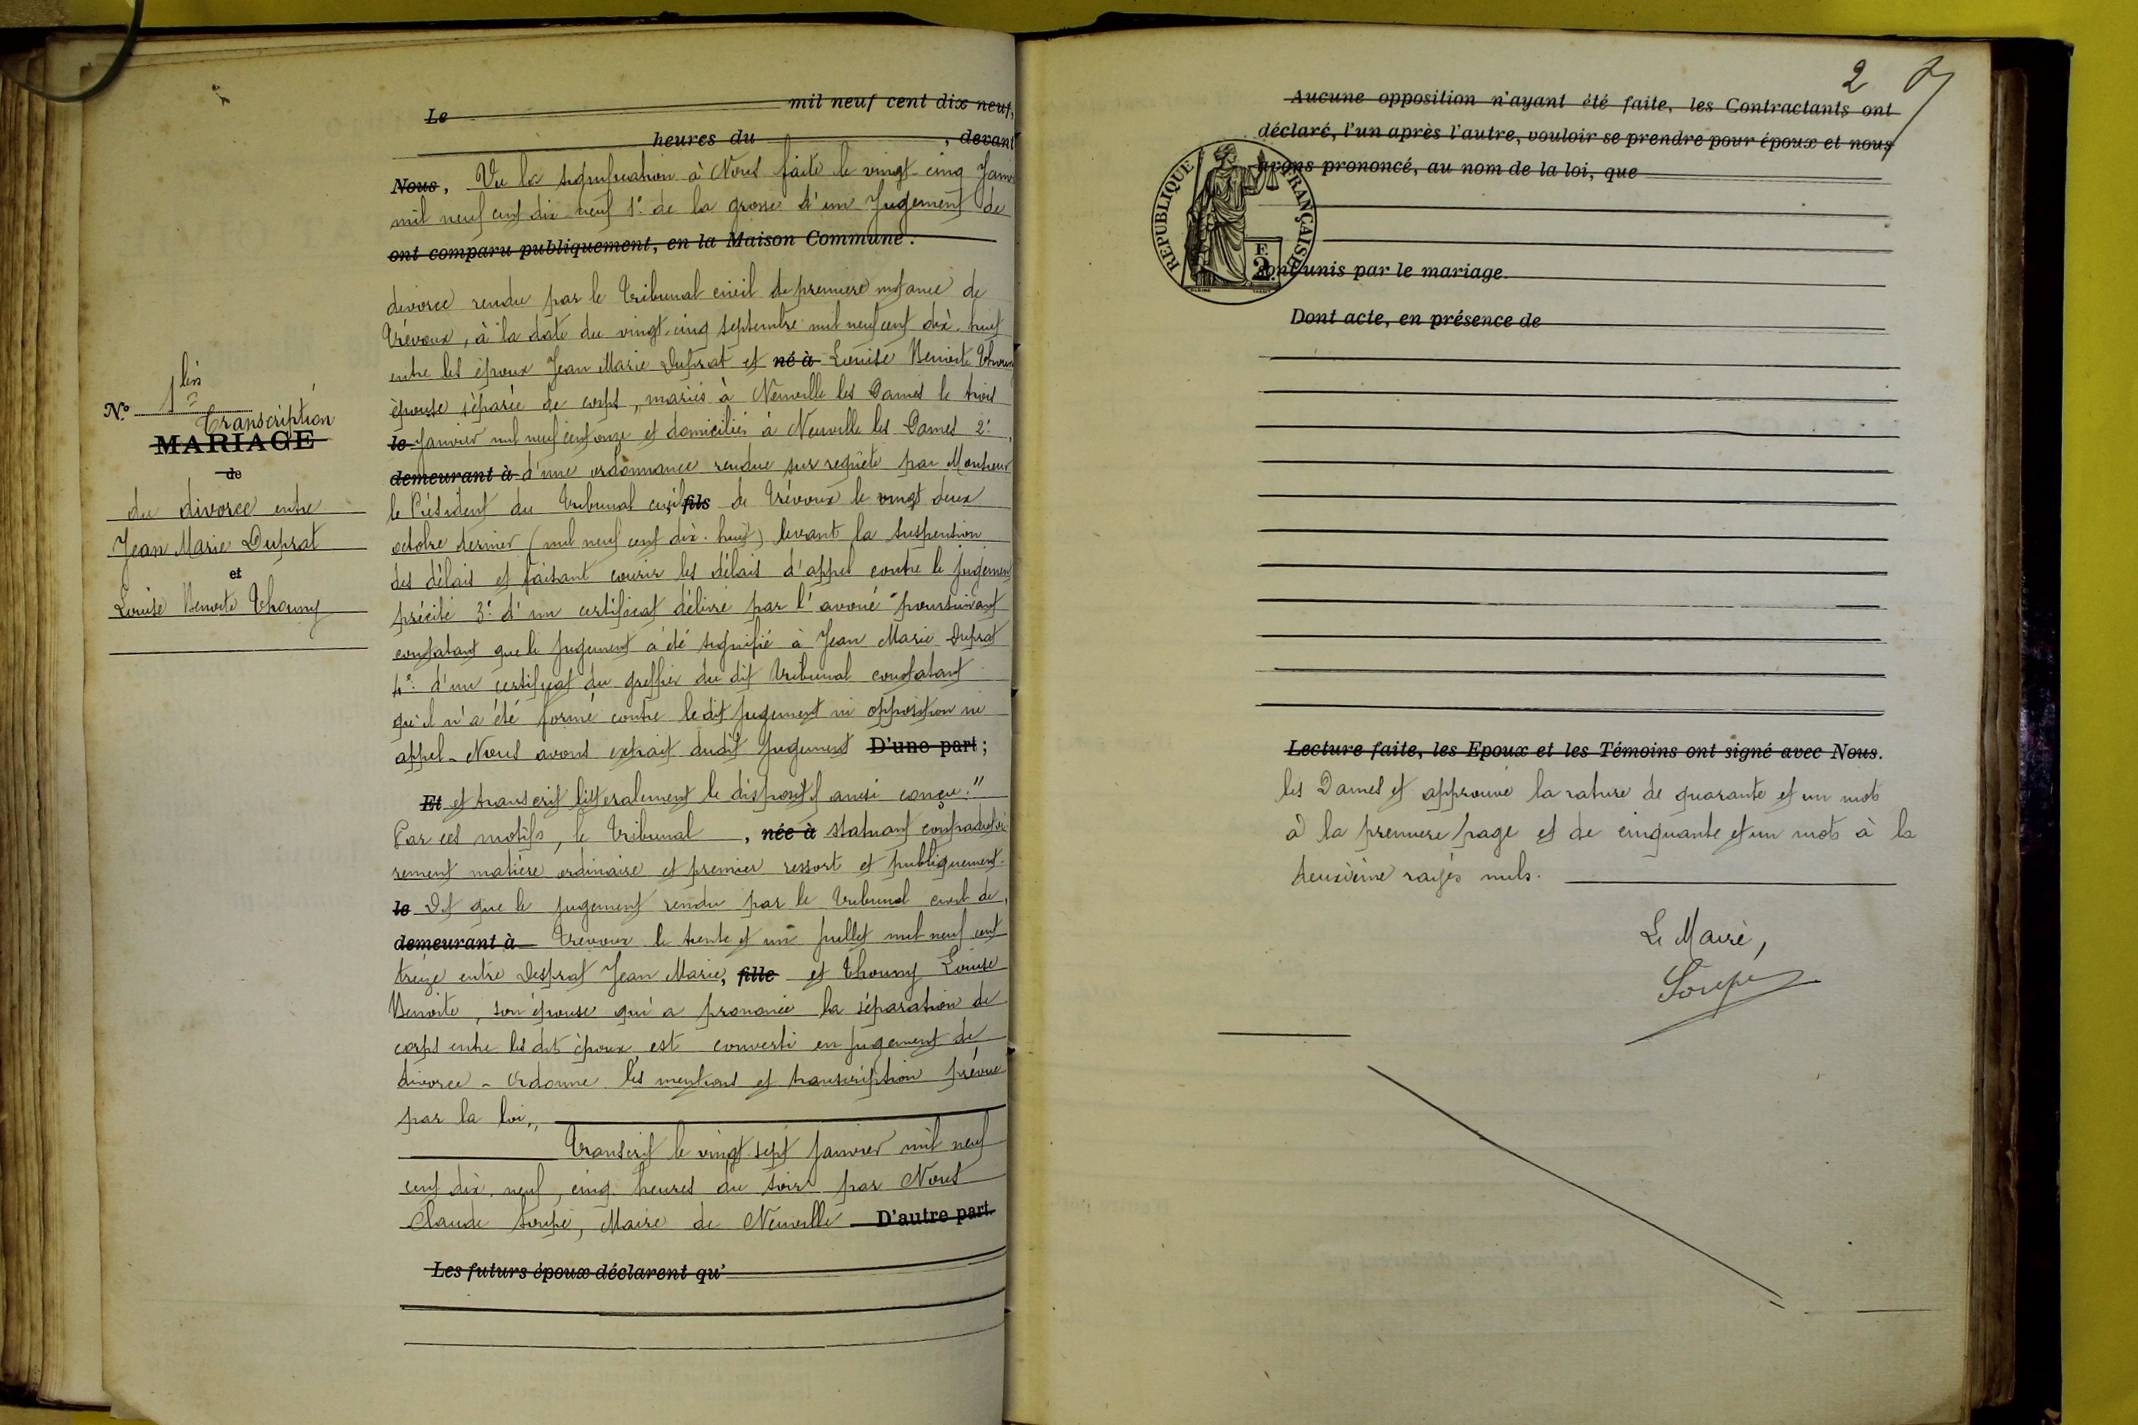 Le mil neuf cent dix neuf,
heures du , devant
Nous, Vu la signification à Nous faite le vingt cinq Janv
mil neuf cent dix neuf 1º. de la grosse d'un Jugement de
ont comparu publiquement, en la Maison Commune.
divorce rendu par le Tribunal civil de premiere instance de
Trévoux, à la date du vingt-cinq septembre mil neuf cent dix. huit
entre les époux Jean Marie Duprat et né à Louise Benoite Thouny
épouse séparée de corps, mariés à Neuville les Dames le trois
le Janvier mil neuf cent onze et domiciliés à Neuville les Dames 2º.
demeurant à d'une ordonnance rendue sur requête par Monsieur
le Président du Tribunal civil fils de Trévoux le vingt deux
octobre dernier (mil neuf cent dix. huit) levant la suspension
des délais et faisant courir les délais d'appel contre le jugement
précité 3º. d'un certificat délivré par l'avoué poursuivant
constatant que le jugement a été signifié à Jean Marie Duprat
4º. d'un certificat du greffier du dit Tribunal constatant
qu'il n'a été formé contre ledit jugement ni opposition ni
appel - Nous avons extrait dudit Jugement D'une part ;
Et et transcrit litteralement le dispositif ainsi conçu :"
Par ces motifs, le Tribunal , née à statuant contradictoi-
rement matière ordinaire et premier ressort et publiquement.
le Dit que le jugement rendu par le Tribunal civil de
demeurant à Trévoux le trente et un juillet mil neuf cent
treize entre Desprat Jean Marie, fille et Thouny Louise
Benoite, son épouse qui a prononcé la séparation de
corps entre les dits époux est converti en jugement de
divorce - Ordonne les mentions et transcription prévue
par la loi,,
Transcrit le vingt-sept janvier mil neuf
cent dix. neuf, cinq heures du soir par Nous
Claude Soupe, Maire de Neuville D'autre part.
Les futurs époux déclarent qu'
Nº 1 bis
Transcription
MARIAGE
de
du divorce entre
Jean Marie Duprat
et
Louise Benoite Thouny
2
Aucune opposition n'ayant été faite, les Contractants ont
déclaré, l'un après l'autre, vouloir se prendre pour époux et nous
avons prononcé, au nom de la loi, que
REPUBLIQUE FRANÇAISE
F.
2
sont unis par le mariage
Dont acte, en présence de
Lecture faite, les Epoux et les Témoins ont signé avec Nous.
les Dames et approuvé la rature de quarante et un mots
à la premiere page et de cinquante et un mots à la
deuxième rayés nuls.
Le Maire,
Soupe